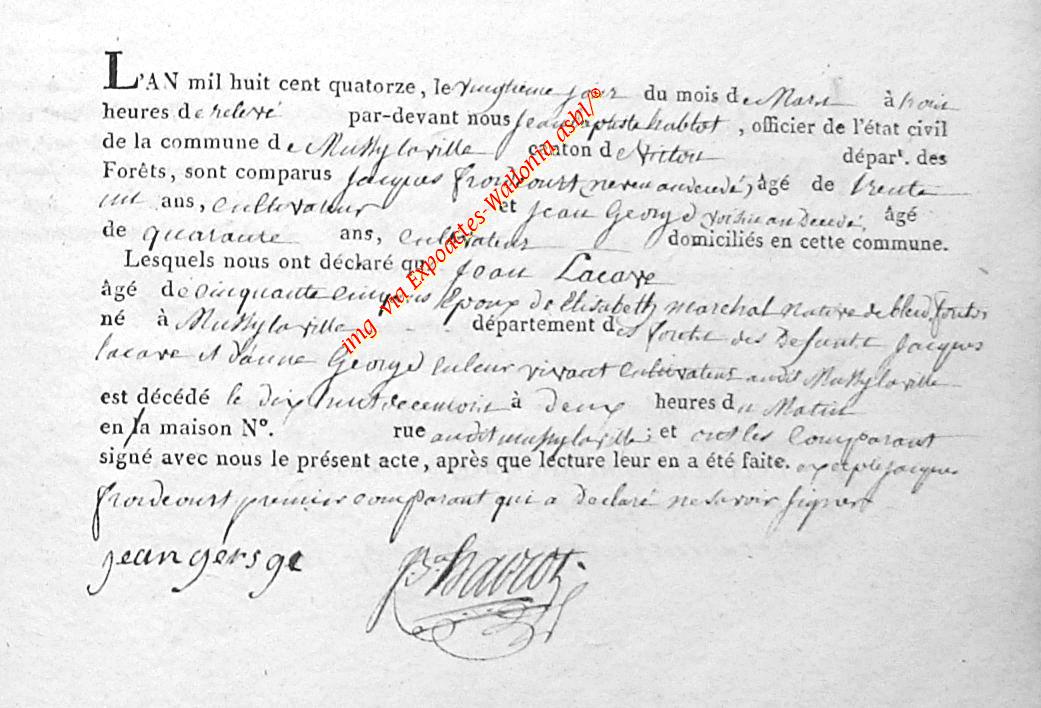 L'AN mil huit cent quatorze, le vingtieme jour du mois de Mars à trois
heures de relevé par-devant nous jean baptiste habtot, officier de l'état civil
de la commune de Mussy la ville canton de Virton dépar<sup>t</sup>. des
Forêts, sont comparus jacques froidcourt neveu au decedé, âgé de trente
huit ans, Cultivateur et jean George voisin au decedé, âgé
de quarante ans, cultivateur domiciliés en cette commune.
Lesquels nous ont déclaré que jean Lacave
âgé de cinquante cinq ans Epoux de Elisabeth marchal native de
né à Mussy la ville département des forêts des Defunts jacques
lacave et d'anne George en leur vivant Cultivateurs audit Mussy la ville
est décédé le dix huit de ce mois à deux heures du Matin
en la maison N°. rue audit mussy la ville; et ont les Comparant
signé avec nous le présent acte, après que lecture leur en a été faite. excepté jacques
froidcourt premier comparant qui a declaré ne savoir signer
jean gersge
img via Expoactes-Wallonia asbl/©